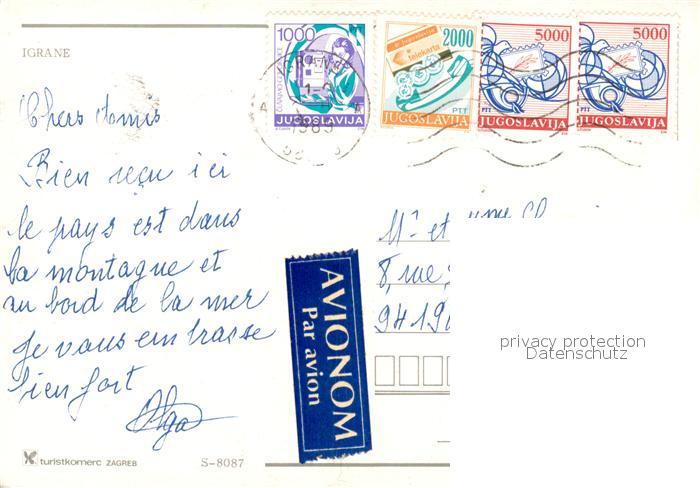 IGRANE
Chers Amis
Bien reçu ici
le pays est dans
la montagne et
au bord de la mer
Je vous embrasse
bien fort
Olga
turistkomerc ZAGREB
S-8087
1000
JUGOSLAVIJA
telekarta
2000
PTT
JUGOSLAVIJA
5000
PTT
JUGOSLAVIJA
5000
PTT
JUGOSLAVIJA
1989
AVIONOM
Par avion
Mr et
8, rue
9419
privacy protection
Datenschutz